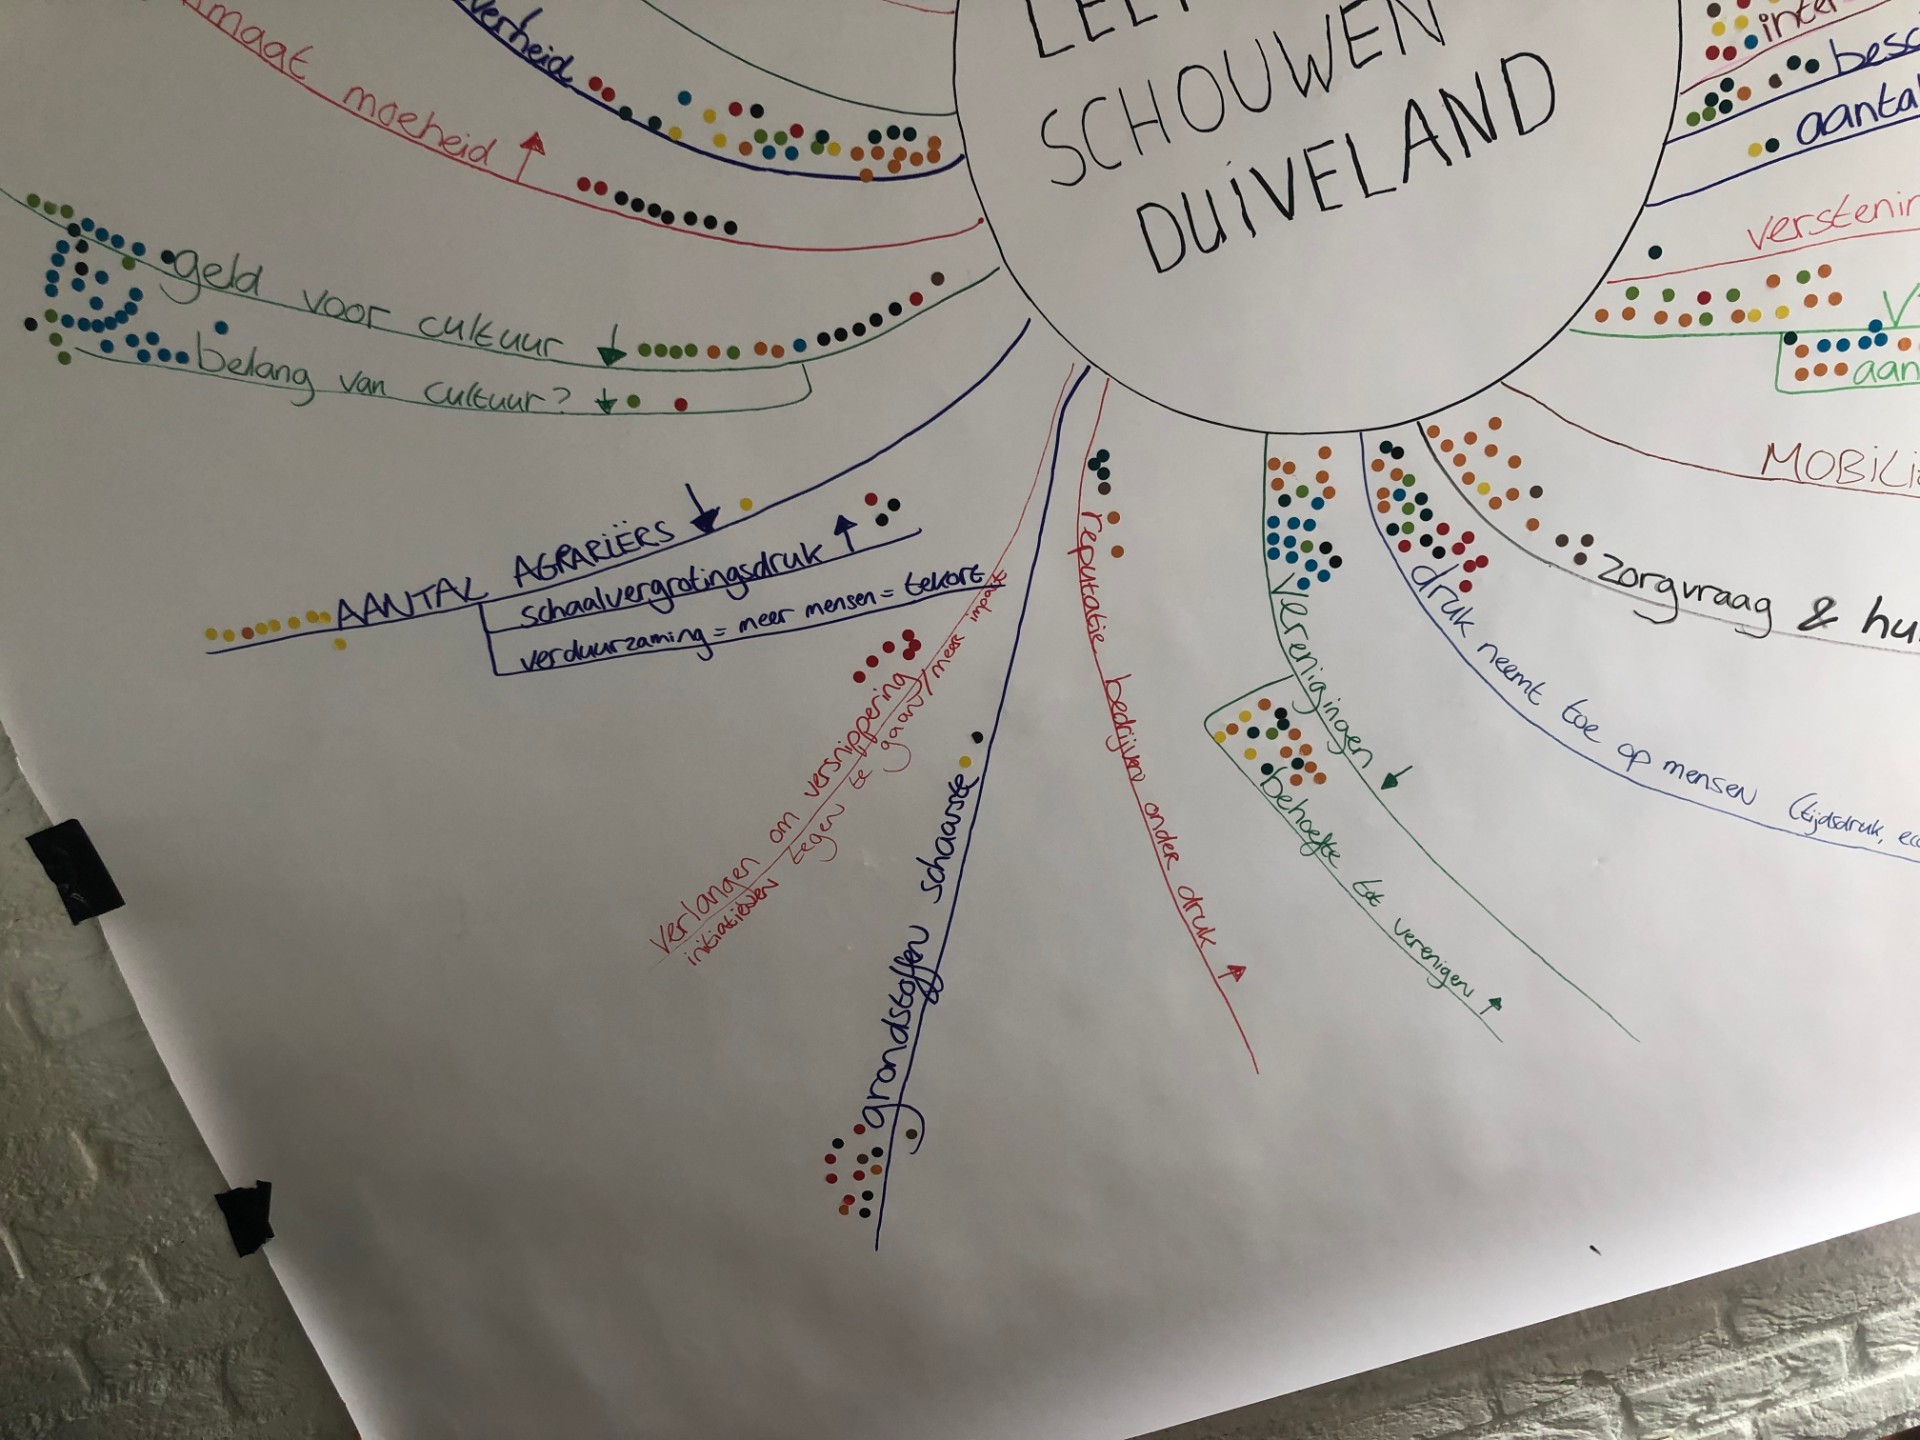 SCHOUWEN
DUIVELAND
maat moeheid ↑
geld voor cultuur ↓
belang van cultuur? ↓
AANTAL AGRARIËRS ↓
schaalvergrotingsdruk ↑
verduurzaming = meer mensen = tekort
verlangen om versnippering
initiatieven tegen te gaan / meer impact
grondstoffen schaarste
reputatie bedrijven onder druk ↑
verenigingen ↓
behoefte tot verenigen ↑
druk neemt toe op mensen (tijdsdruk,
zorgvraag &